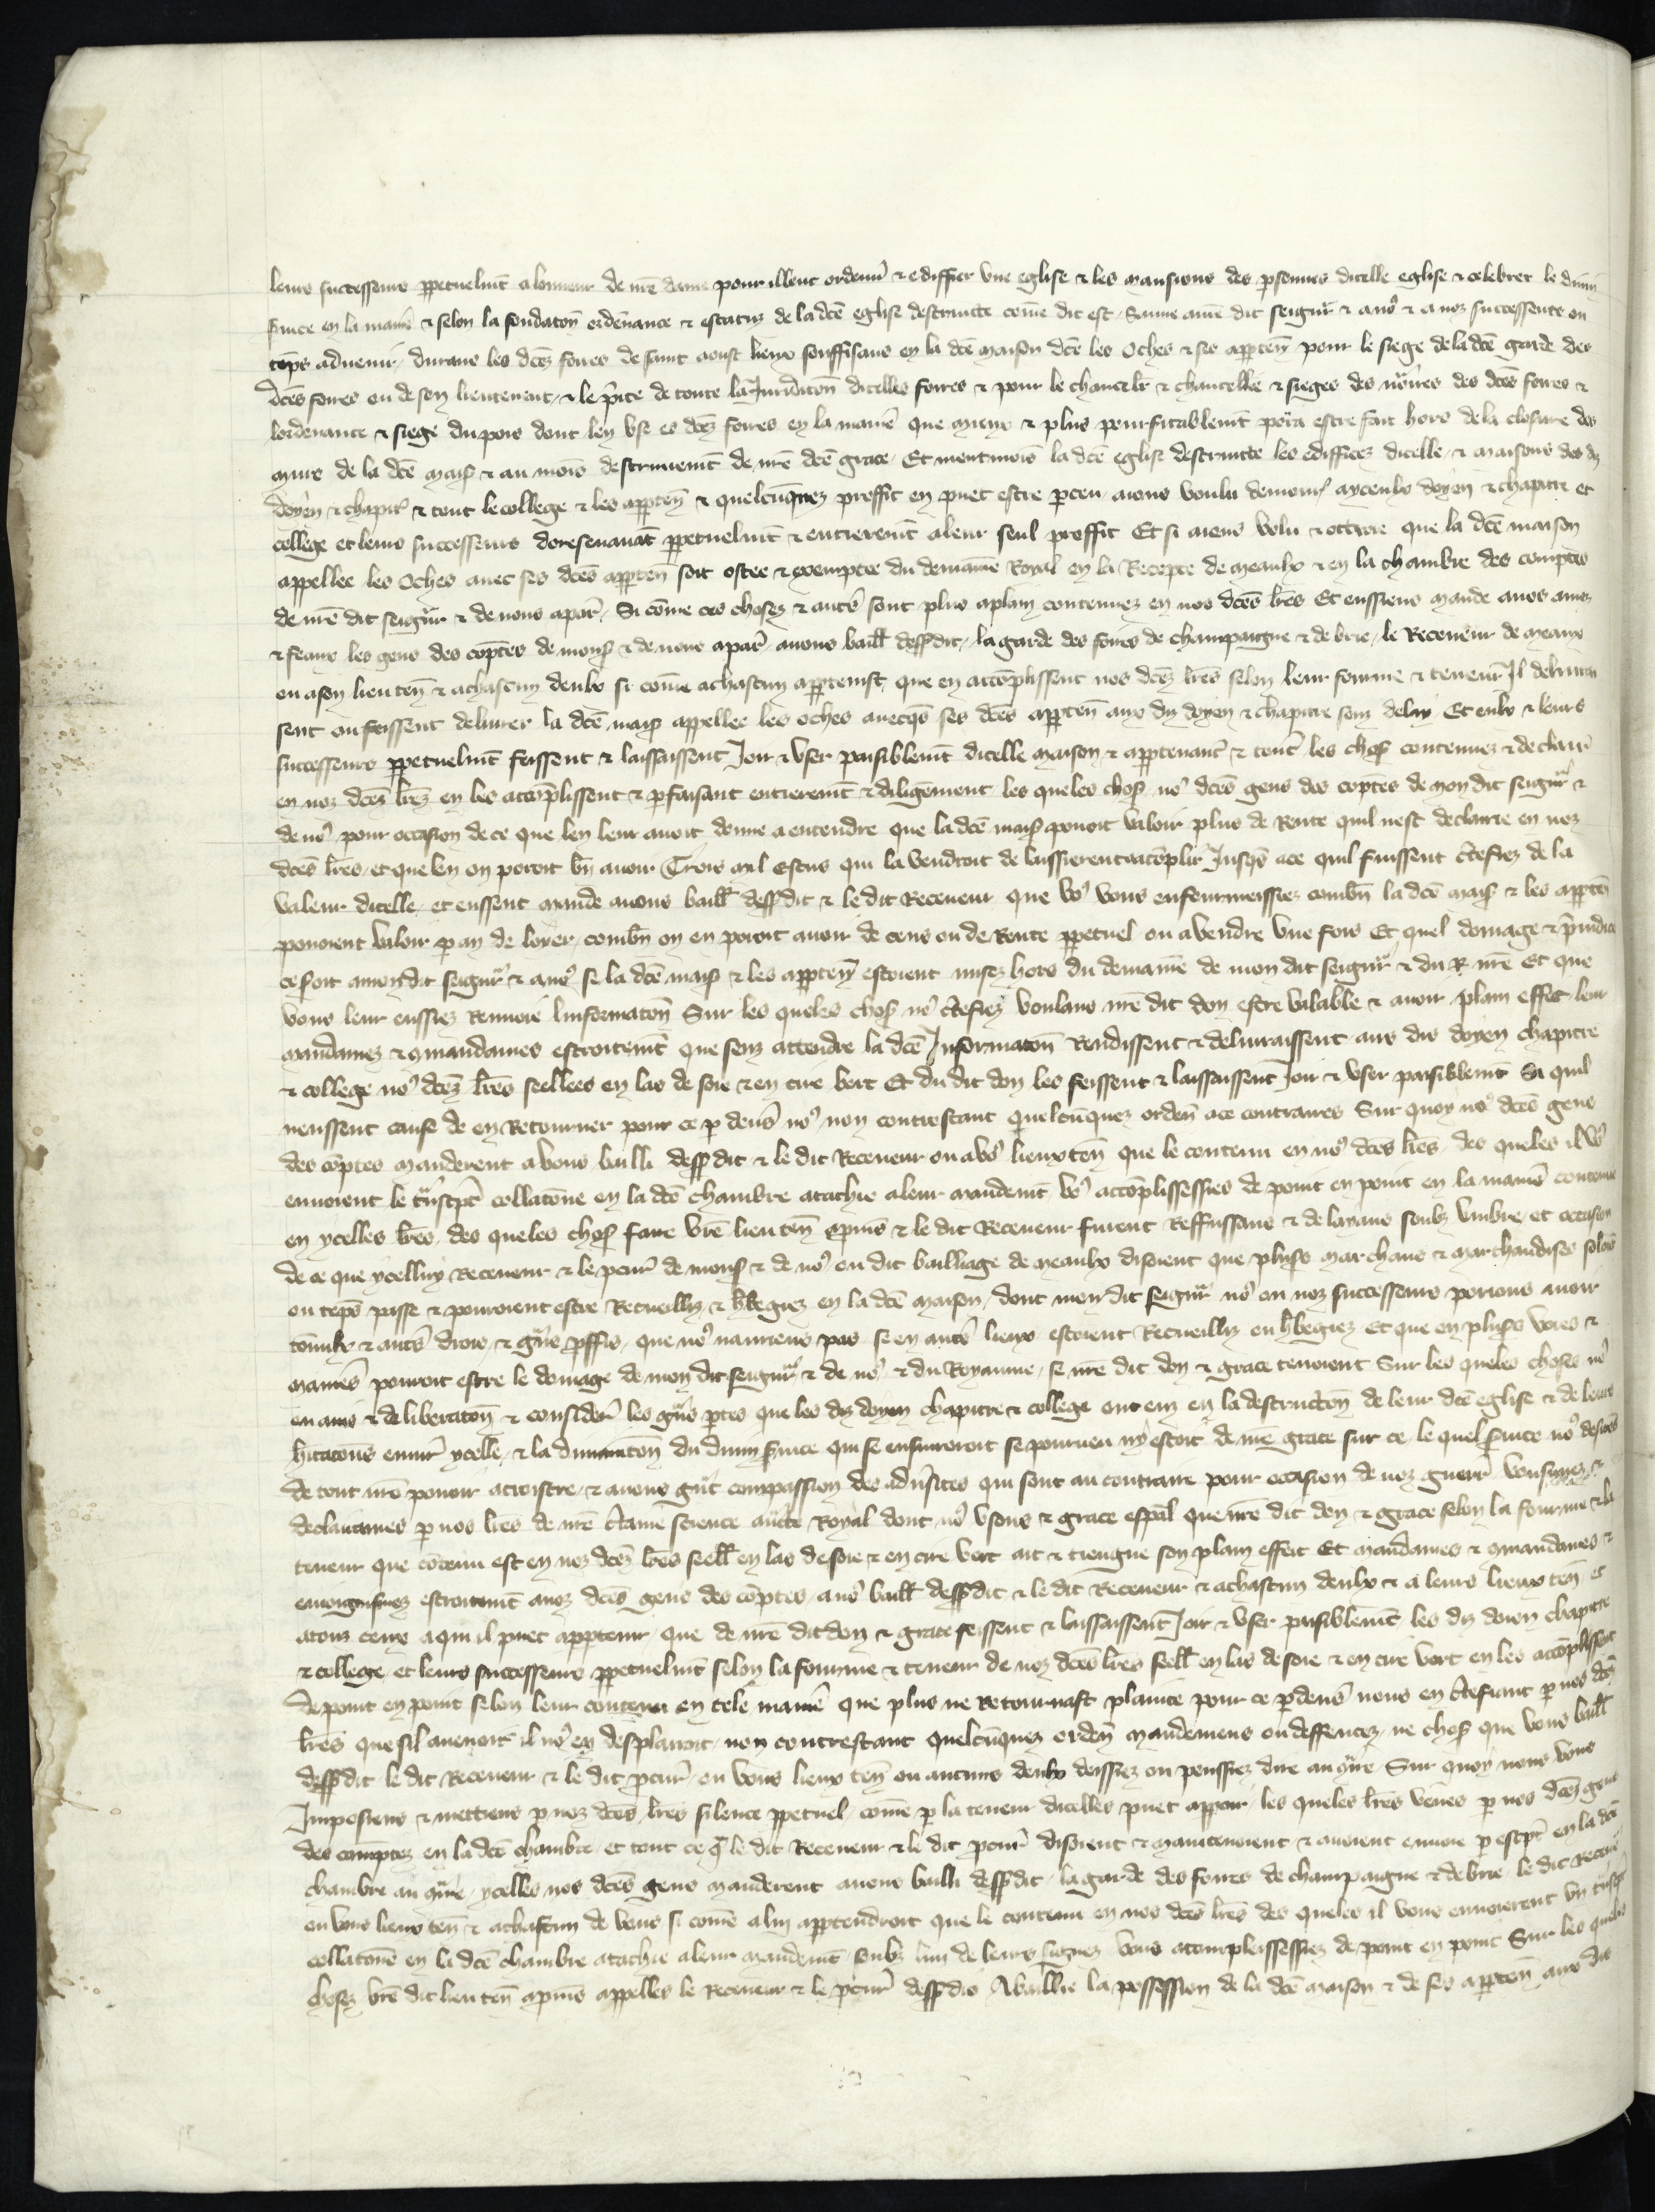 leurs successeurs ppetuelmt a lonneur de nre dame pour illuec ordener & ediffier une eglise & les mansions des psonnes dicelle eglise & celebrer le divin
service en la maniere & selon la fondaton ordenance & estatuz de la dce eglise destruicte come dit est Sauve a mon dit seigneur & a nos & a noz successeurs ou
teps advenir durans les dcez foires de saint aoust lieux souffisans en la dce maison dce les Oches & ses apparten pour le siege de la dce garde des
dces foires ou de son lieutenent & le prite de toute la Jurisdicton dicelles foires & pour le chancelier & chancellie & sieges des notaires des dces foires &
lordenance & siege du pois dont len use es dcez foires en la maniere que mieux & plus prouffitablemt pora estre fait hors de la closture des
murs de la dce mais & au mois destruiemt de nre dce grace Et nientmois la dce eglise destruicte les edifficez dicelle & maisons des diz
doyen & chapitre & tout le college & les apparten & quelcuquez proffit en puet estre perceu avons voulu demourer a yceulx doyen & chapitre et
college et leurs successeurs doresenavat ppetuelmt & entieremt a leur seul proffit Et si avons volu & octroie que la dce maison
appellee les Oches avec ses dces apparten soit ostee & exemptee du demaine Royal en la Recepte de Meaulx & en la chambre des comptes
de nre dit seigneur & de nous apar Si come ces chosez & autres sont plus aplain contenuez en nos dces lres Et eussiens mande a nos amez
& feaux les gens des coptes de mons & de nous apar a vous baill dessdit la garde des foires de champaigne & de brie le Receveur de meaux
ou a son lieuten & a chascun deulx si come a chascun appartenist que en accoplissent nos dcez lres selon leur fourme & teneur Il delivras
sent ou feissent delivrer la dce mais appellee les oches avecqs ses dces apparten aux diz doyen & chapitre senz delay Et eulx & leurs
successeurs ppetuelmt feissent & laissaissent Joir & user paisiblemt dicelle maison & appartenanc & toutes les chos contenuez & declair
en noz dcez lrez en les accoplissent & pfaisant entieremt & diligement les queles chos nos dces gens des coptes de mon dit seigneur &
de nos pour occasion de ce que len leur avoit donne a entendre que la dce mais povoit valoir plus de Rente quil nest declairie en noz
dces lres et que len en poroit bn avoir Trois mil Escus qui la vendroit delaissierent a accoplir Jusqs a ce quil fuissent certefiez de la
valeur dicelle et eussent mande a vous baill dessdit & le dit Receveur que vos vous enfourmeissiez combn la dce mais & les apparten
povoient valoir par an de loyer combn on en poroit avoir de cens ou de Rente ppetuel ou a vendre une fois Et quel domage & preiudice
ce soit a mon dit seigneur & a nos se la dce mais & les apparten estoient misez hors du demaine de mon dit seigneur & du R nre Et que
vous leur eussiez Renvoie linformaton Sur les queles chos nos certefiez voulans nre dit don estre valable & avoir plain effect leur
mandamez & comandames estroitemt que senz attendre la dce Informaton Rendissent & delivraissent aus dis doyen chapitre
& college nos dcez lres seellees en las de soie & en cire vert Et du dit don les feissent & laissaissent Joir & user paisiblemt Si quil
neussent cause de en Retourner pour ce par devers nos non contrestant quelcuquez orden a ce contraires Sur quoy nos dces gens
des coptes manderent a vous bailli dessdit & le dit Receveur ou a vos lieuxten que le contenu en nos dces lres des queles il vos
envoient le trascpt collatone en la dce chambre atachie a leur mandemt vos accoplissessies de point en point en la maniere contenue
en ycelles lres des queles chos faire vre lieuten apmis & le dit Receveur furent Reffussans & delayans soubz umbre et occason
de ce que ycelluy Receveur & le pcur de mons & de nos ou dit bailliage de meaulx disoient que plusrs marchans & marchandises soloit
ou teps passe & pouroient estre Recueilliz & hbergiez en la dce maison dont mon dit seigneur nos ou noz successeurs porions avoir
touulx & autres drois & gns proffis que nos naurions pas se en autres lieux estoient Recueilliz ou hbegiez Et que en plusrs voies &
manies pouroit estre le domage de mon dit seigneur & de nos & du Royaume se nre dit don & grace tenoient Sur les queles choses nos
eu avis & deliberaton & consider les gns ptes que les diz doyen chapitre & college ont eu en la destructon de leur dce eglise & de leurs
hitacons entour ycelle & la diminuiton du divin service qui se ensuivroit se pourveu ny estoit de nre grace sur ce le quel service nos desirons
de tout nre povoir acroistre & avons grt compassion des adversites qui sont au contraire pour occasion de noz guerr vousimez &
declarames par nos lres de nre certaine science aucte Royal dont nos usons & grace espal que nre dit don & grace selon la fourme & la
teneur que cotenu est en noz dcez lres seell en las de soie & en cire vert ait & tiengne son plain effect Et mandames & comandames &
enioignismez estroitemt a noz dces gens des coptes a vos baill dessdit & le dit Receveur & a chascun deulx & a leurs lieuxten et
a touz ceux a qui il puet appartenir que de nre dit don & grace feissent & laissaissent Joir & user paisiblemt les diz doien chapitre
& college et leurs successeurs ppetuelmt selon la fourme & teneur de noz dces lres seell en las de soie & en cire vert en les accoplissent
de point en point selon leur contenu en tele manie que plus ne Retournast plainte pour ce par devers nous en certefiant par nos dces
lres que sil avenoit il nos en desplairoit non contrestant quelcuquez orden mandemens ou deffencez ne chos que vous baill
dessdit le dit Receveur & le dit pcur ou vous lieuxten ou aucuns deulx deissiez ou peussiez dire au qtre Sur quoy nous vous
Imposiens & mettiens par noz dces lres silence ppetuel come par la teneur dicelles puet apparoir les queles lres veues par nos dcez gens
des comptez en la dce chambre et tout ce q le dit Receveur & le dit pcur disoient & maintenoient & avoient envoie par escpt en la dce
chambre au qtre ycelles nos dces gens manderent a vous bailli dessdit la garde des foires de champaigne & de brie le dit Receveur
ou vous lieuxten & a chascun de vous si come a luy appartendroit que le contenu en nos dces lres des queles il vous envoierent un trascpt
collatone en la dce chambre atachie a leur mandemt soubz lun de leurs signez vous acomplissessiez de point en point Sur les queles
chosez vre dit lieuten apmis appelles le Receveur & le pcur dessdis A baillie la possession de la dce maison & de ses apparten aux dis